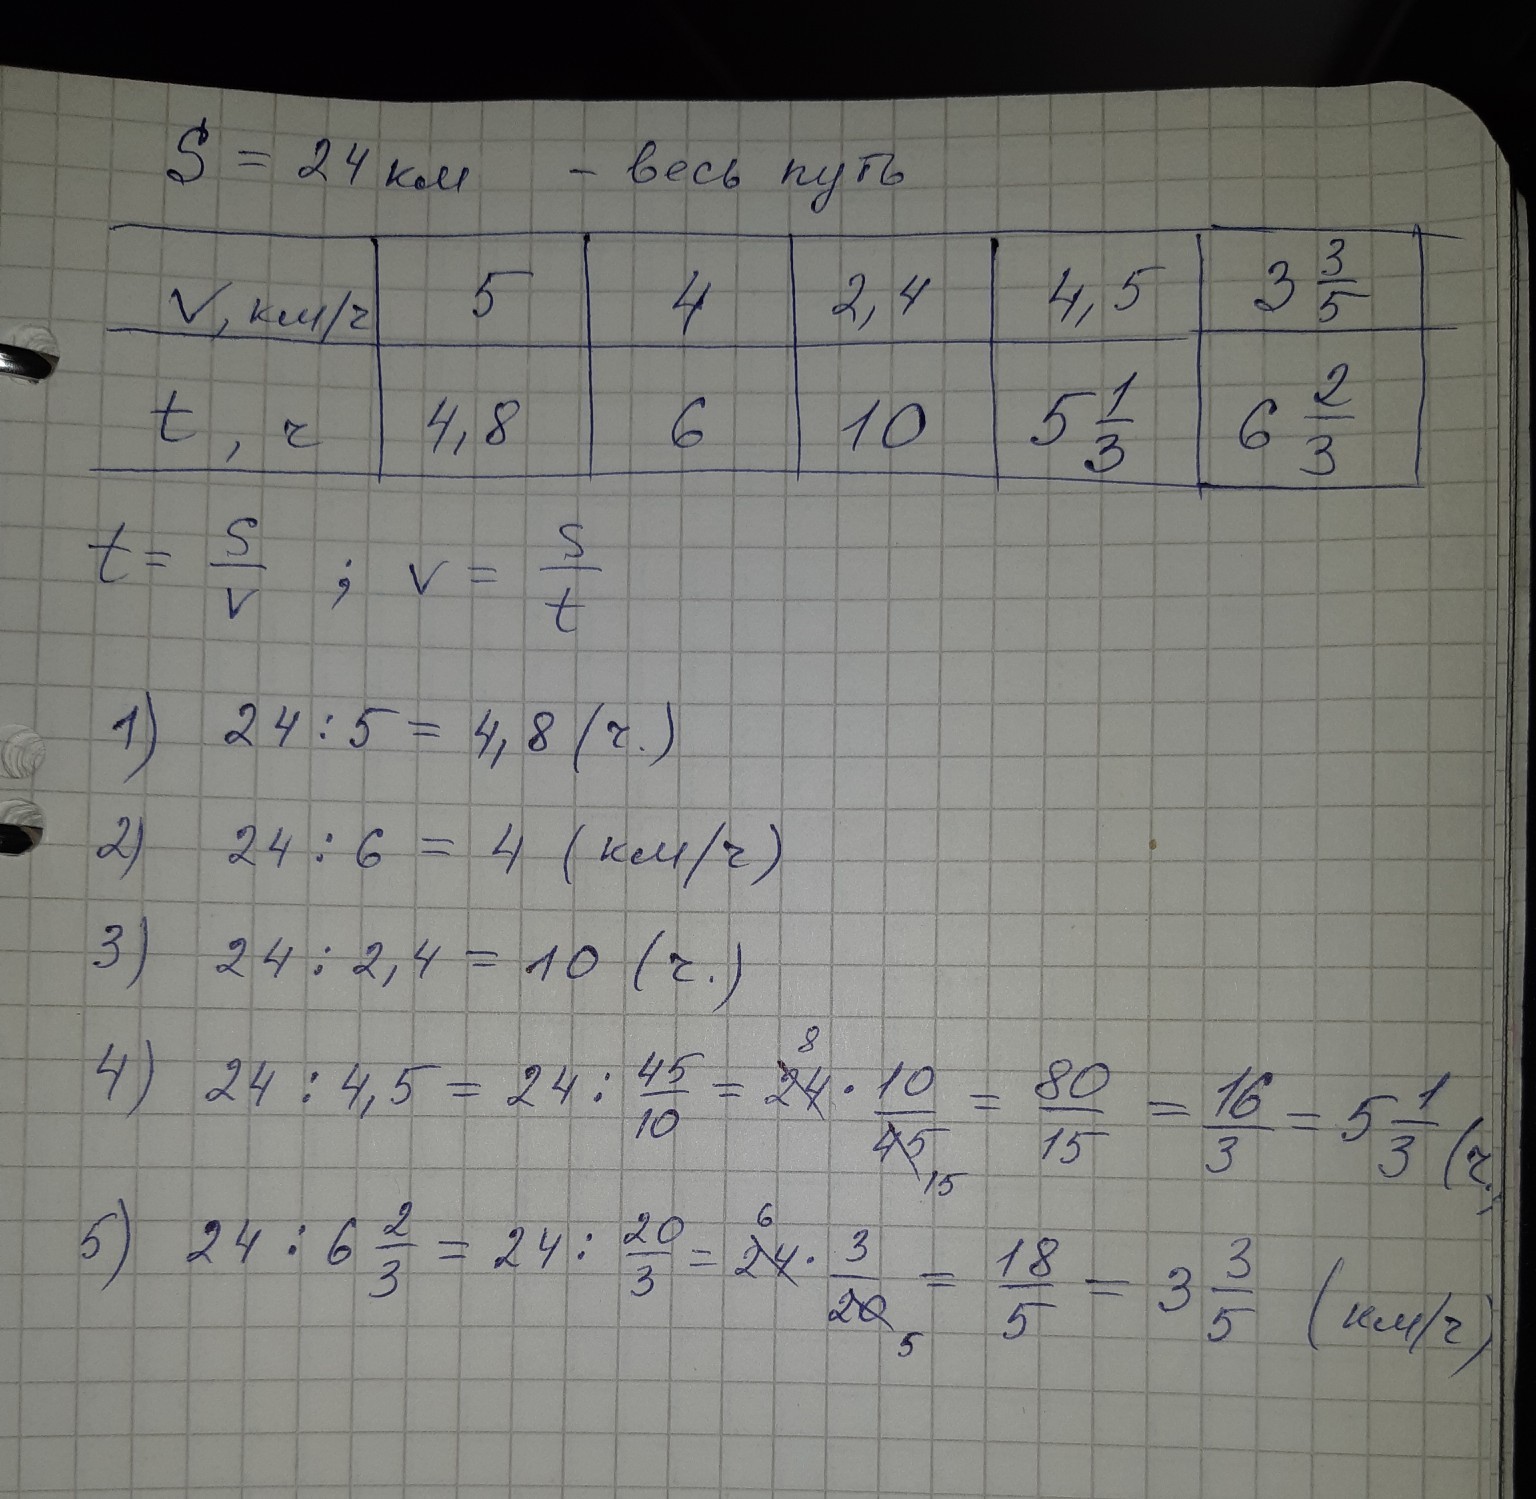 S = 24 км - весь путь
v, км/ч 5 4 2,4 4,5 3 3/5
t, ч 4,8 6 10 5 1/3 6 2/3
t = s/v ; v = s/t
1) 24 : 5 = 4,8 (ч.)
2) 24 : 6 = 4 (км/ч)
3) 24 : 2,4 = 10 (ч.)
4) 24 : 4,5 = 24 : 45/10 = 24 8 · 10/45 15 = 80/15 = 16/3 = 5 1/3 (ч.
5) 24 : 6 2/3 = 24 : 20/3 = 24 6 · 3/20 5 = 18/5 = 3 3/5 (км/ч)